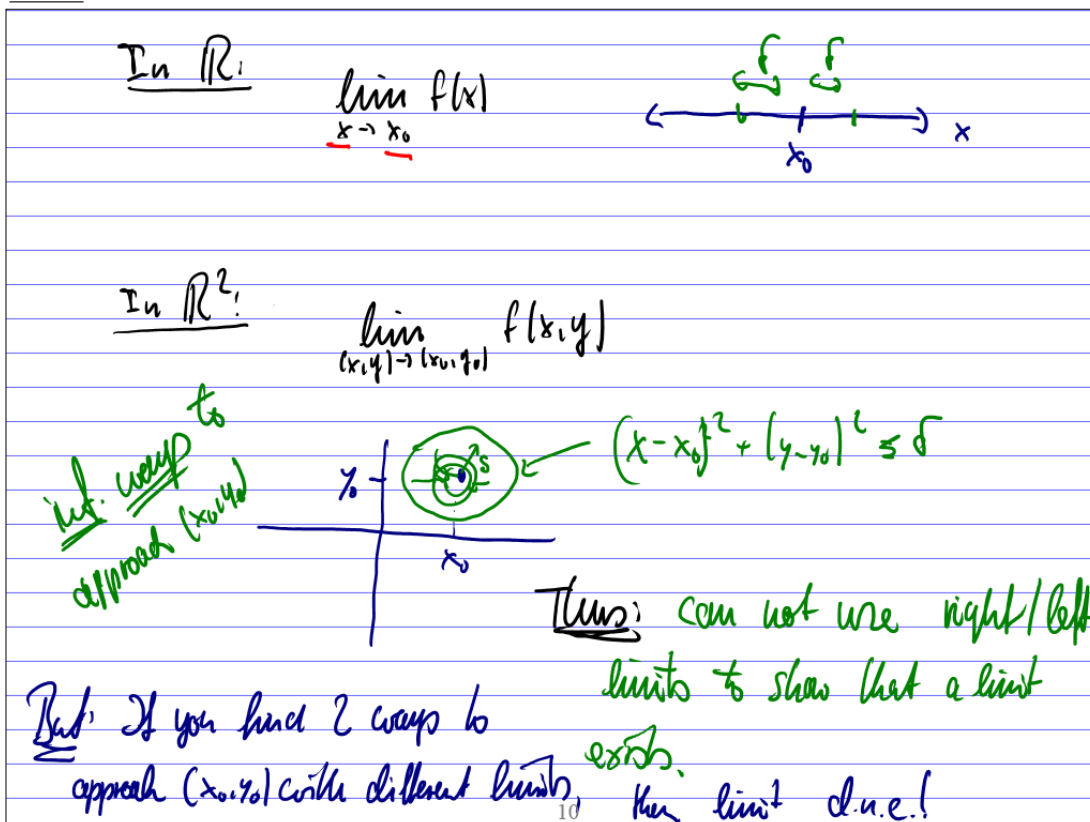 In ℝ:
lim f(x)
x → x₀
δ δ
x₀ x
In ℝ²:
lim f(x,y)
(x,y)→(x₀,y₀)
inf. ways to
approach (x₀,y₀)
(x-x₀)² + (y-y₀)² ≤ δ
y₀ δ
x₀
Thus: can not use right/left
limits to show that a limit
exists.
But: If you find 2 ways to
approach (x₀,y₀) with different limits, then limit d.n.e.!
10